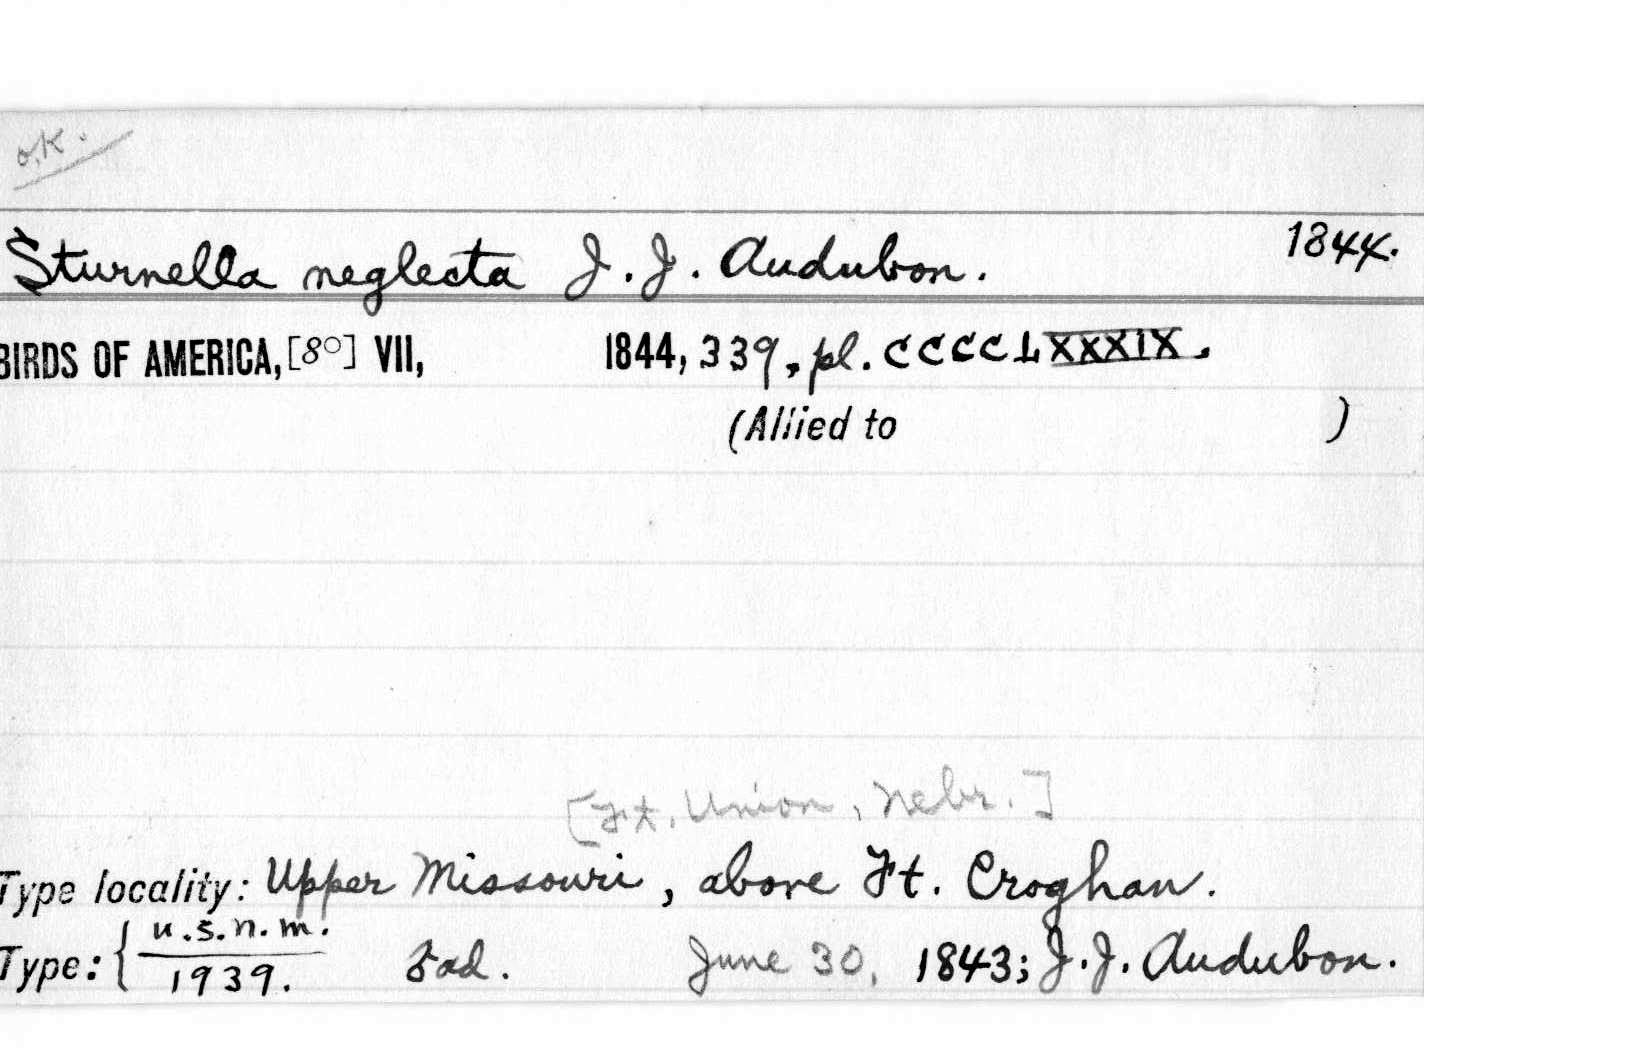 o.K.
Sturnella neglecta J. J. Audubon. 1844.
BIRDS OF AMERICA, [8º] VII, 1844, 339, pl. CCCCLXXXIX.
(Allied to )
[Ft. Union, Nebr.]
Type locality: Upper Missouri, above Ft. Croghan.
Type: { U.S.N.M. 1939. ad. June 30, 1843; J. J. Audubon.